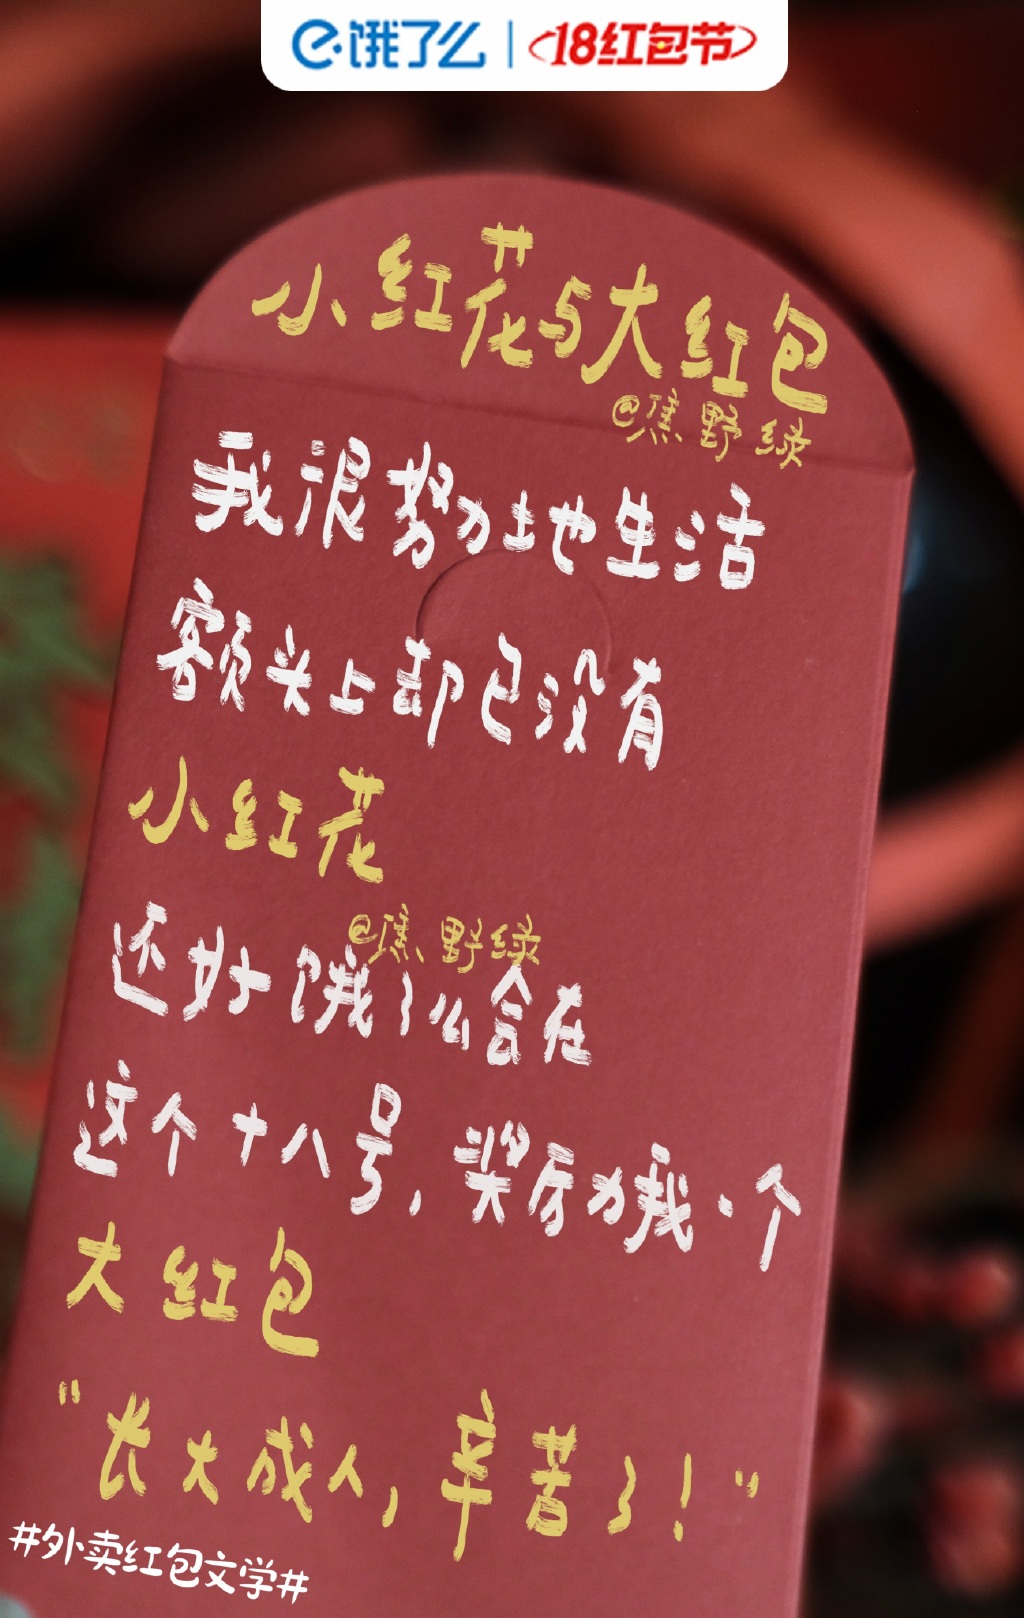 饿了么 | 18红包节
小红花与大红包
@蕉野绿
我很努力地生活
额头上却已没有
小红花
@蕉野绿
还好饿了么会在
这个十八号，奖励我一个
大红包
“长大成人，辛苦了！”
#外卖红包文学#